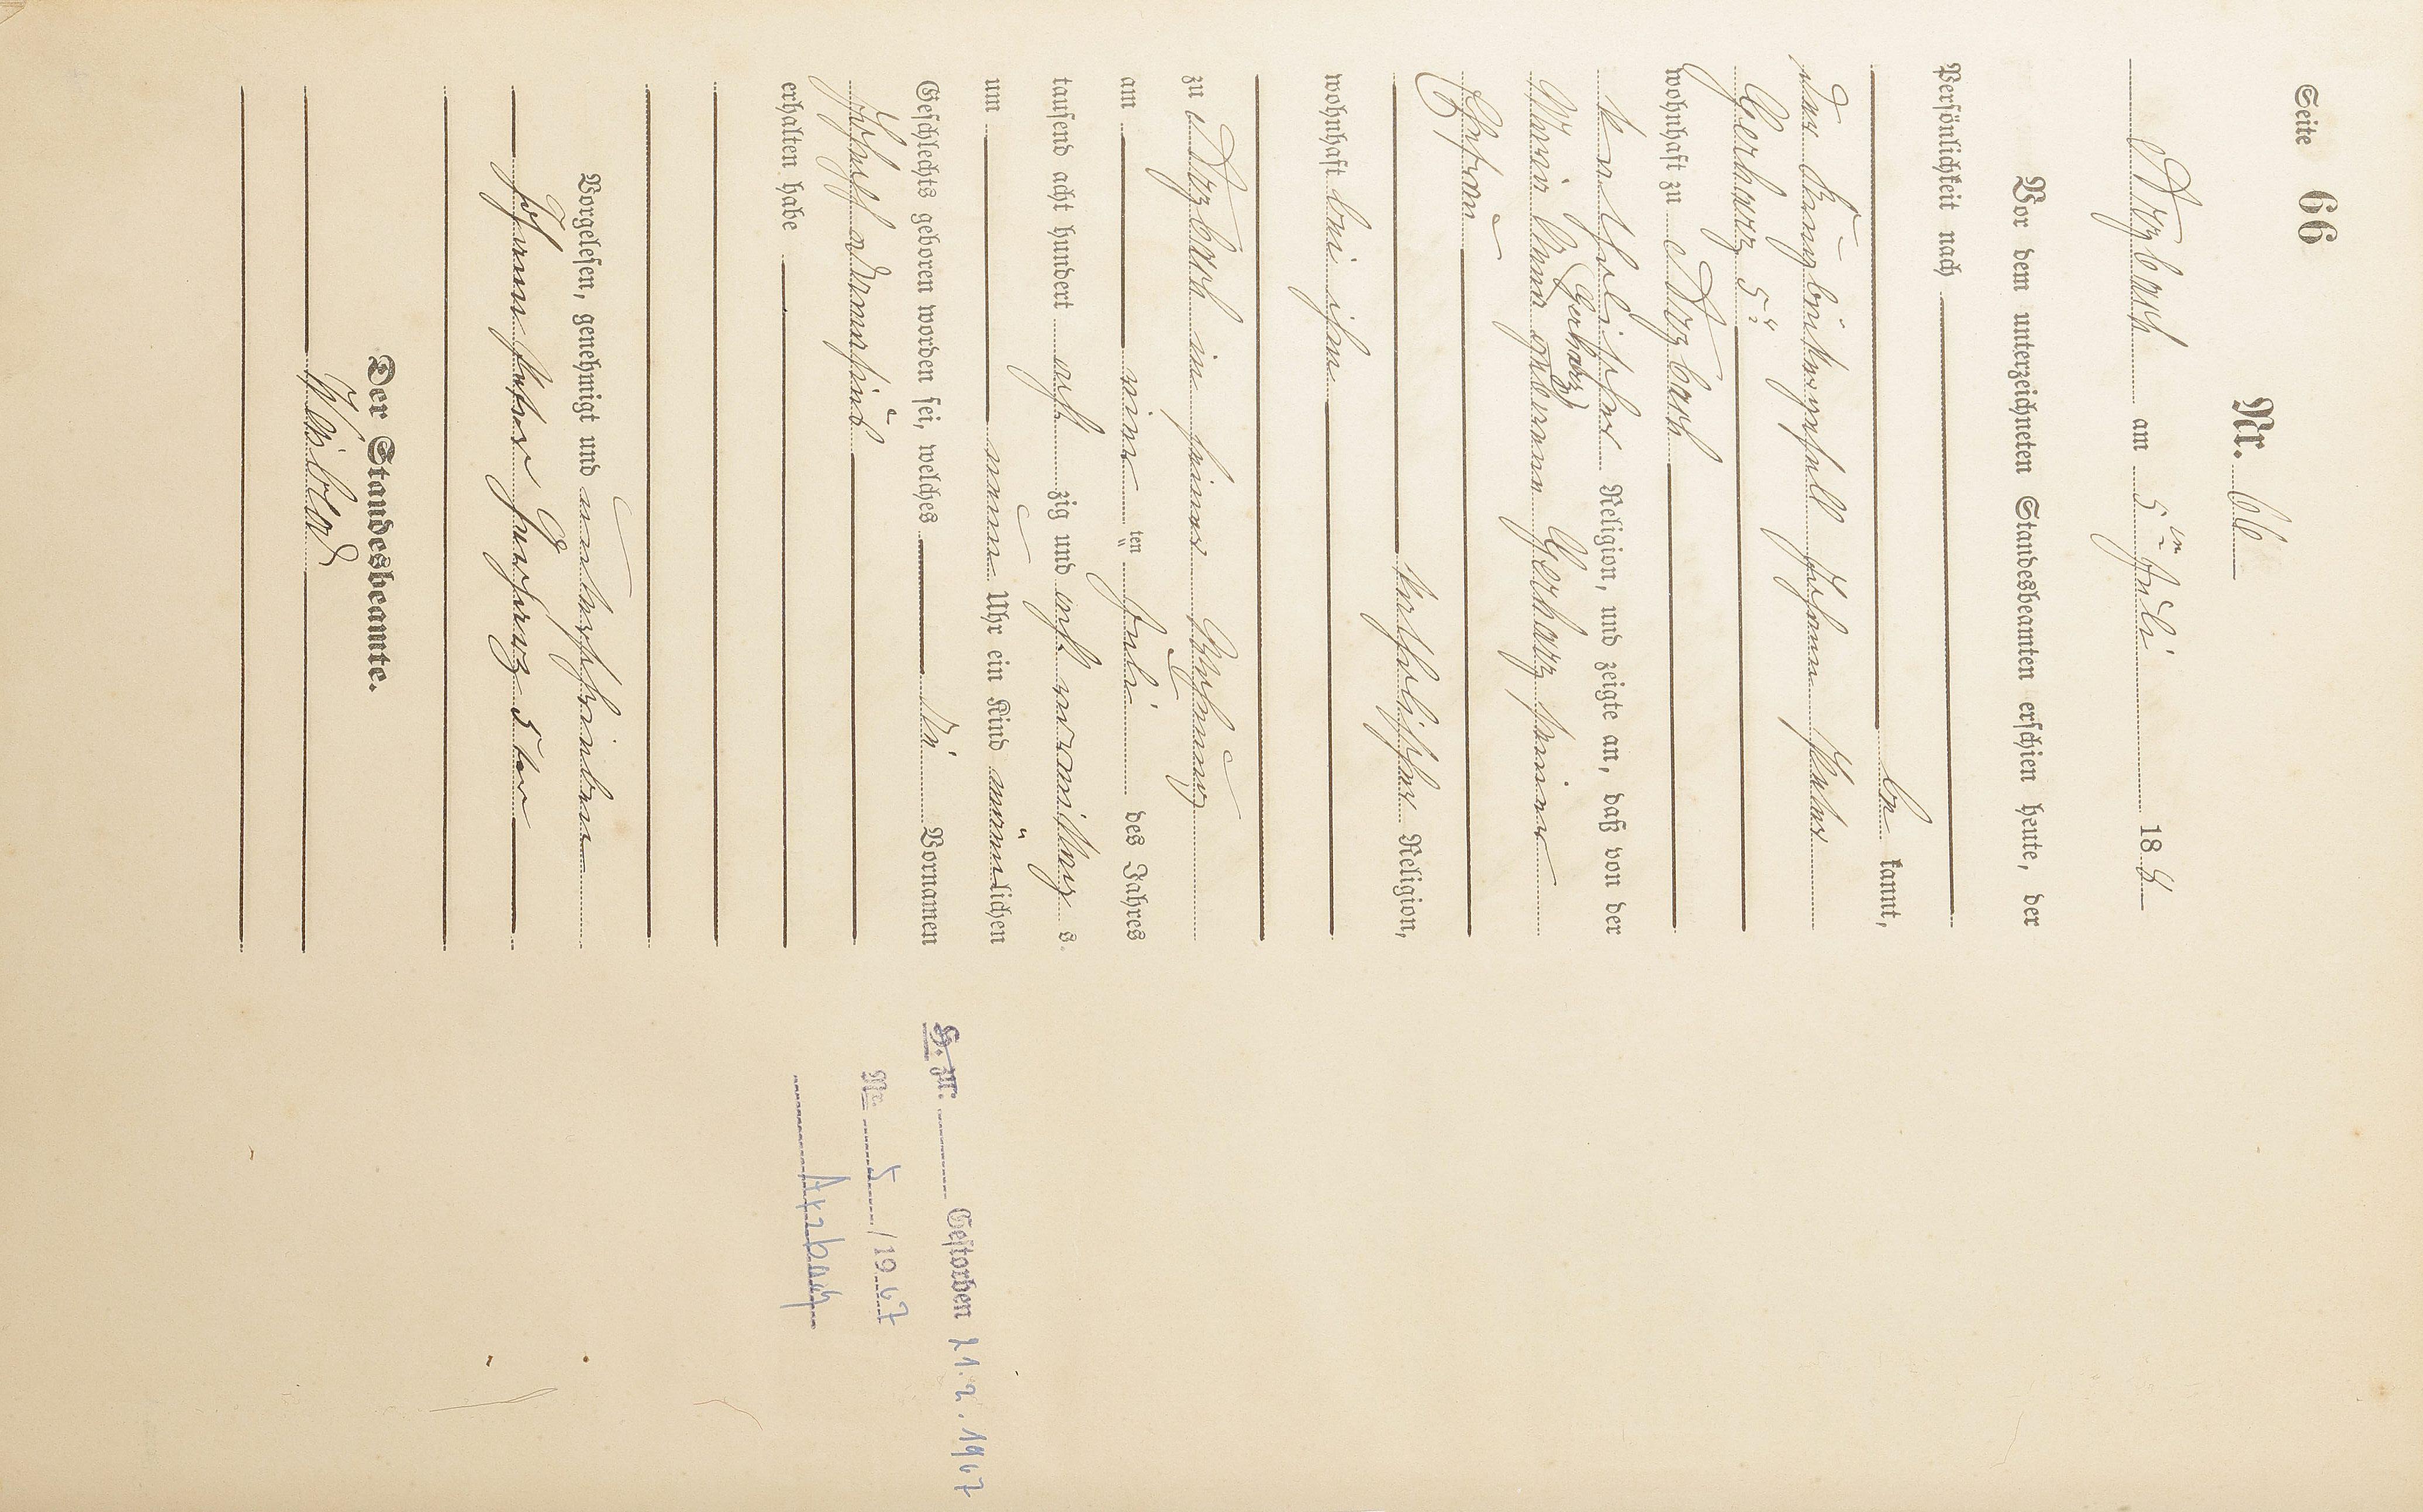 Seite 66
Nr. 66
Arzbach am 5ten Juli 188
Vor dem unterzeichneten Standesbeamten erschien heute, der
Persönlichkeit nach
be kannt,
Johann Peter
Gerharz 5r
wohnhaft zu Arzbach
katholischer Religion, und zeigte an, daß von der
(Gerharz)
Maria Anna geborenen Gerharz seiner
Ehefrau
katholischer Religion,
wohnhaft bei ihm
zu Arzbach in seiner Wohnung
am ten Juli des Jahres
tausend acht hundert acht zig und acht Vormittags s.
um neun Uhr ein Kind männlichen
Geschlechts geboren worden sei, welches die Vornamen
Joseph
erhalten habe
Vorgelesen, genehmigt und unterschrieben
Johann Peter Gerharz 5ter
Der Standesbeamte.
H. M. Gestorben 21.2.1967
Nr. 5 / 1967
Arzbach